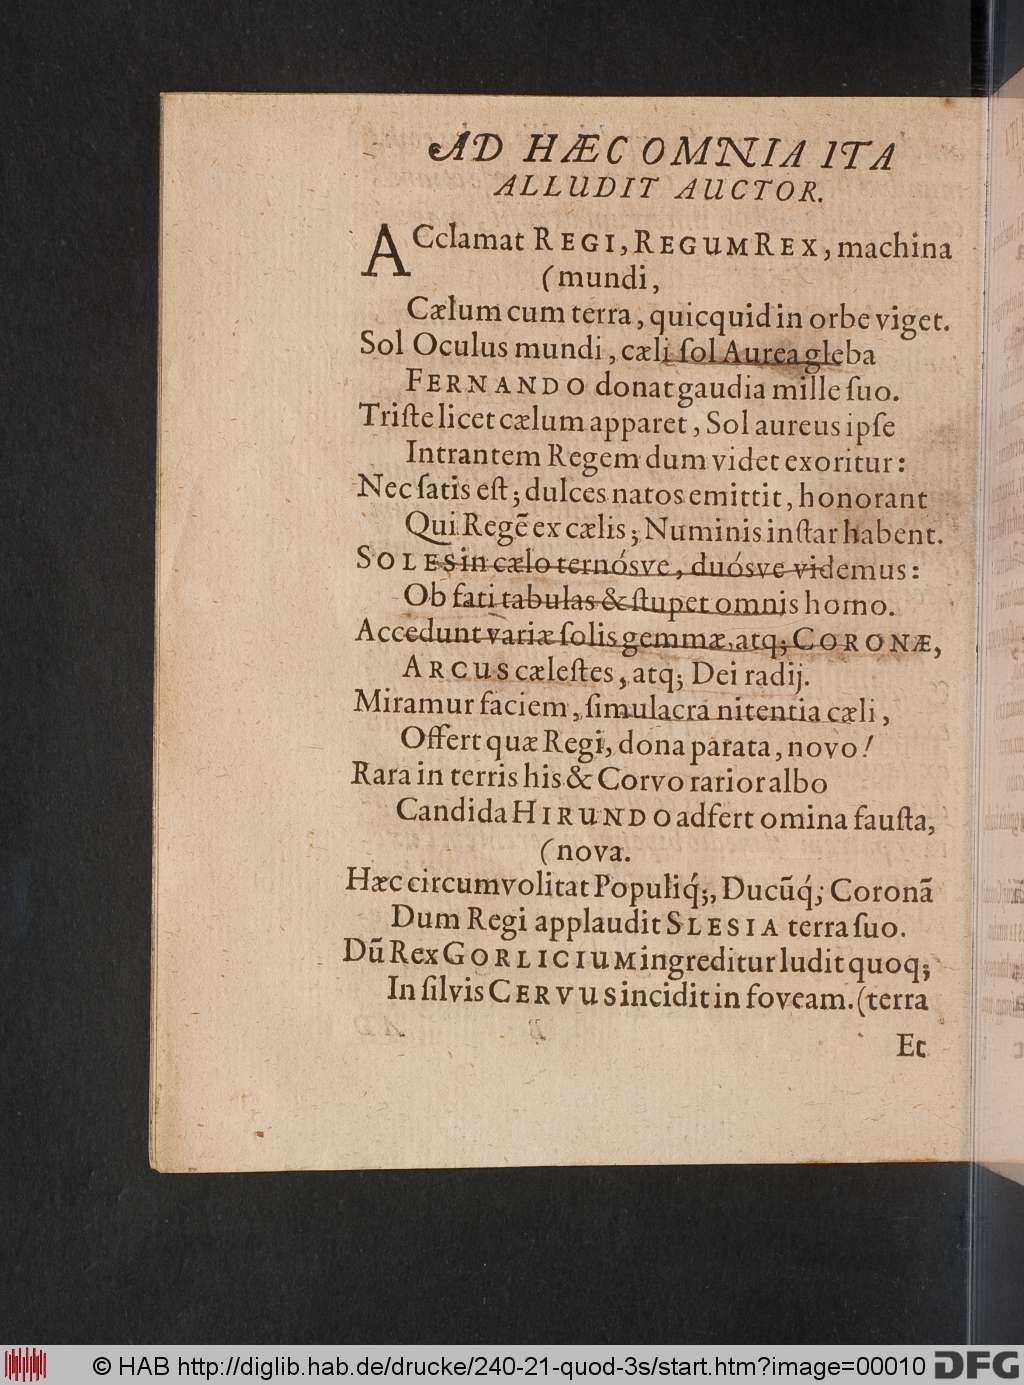 AD HÆC OMNIA ITA
ALLUDIT AUCTOR.
ACclamat REGI, REGUM REX, machina
(mundi,
Cælum cum terra, quicquid in orbe viget.
Sol Oculus mundi, cæli ſol Aurea gleba
FERNANDO donat gaudia mille ſuo.
Triſte licet cælum apparet, Sol aureus ipſe
Intrantem Regem dum videt exoritur:
Nec ſatis eſt; dulces natos emittit, honorant
Qui Regẽ ex cælis; Numinis inſtar habent.
SOLES in cælo ternósve, duósve videmus:
Ob fati tabulas & ſtupet omnis homo.
Accedunt variæ ſolis gemmæ, atq; CORONÆ,
ARCUS cæleſtes, atq; Dei radij.
Miramur faciem, ſimulacra nitentia cæli,
Offert quæ Regi, dona parata, novo!
Rara in terris his & Corvo rarior albo
Candida HIRUNDO adfert omina fauſta,
(nova.
Hæc circumvolitat Populiq́;, Ducũq́; Coronã
Dum Regi applaudit SLESIA terra ſuo.
Dũ Rex GORLICIUM ingreditur ludit quoq;
In ſilvis CERVUS incidit in foveam. (terra
Et
© HAB http://diglib.hab.de/drucke/240-21-quod-3s/start.htm?image=00010
DFG